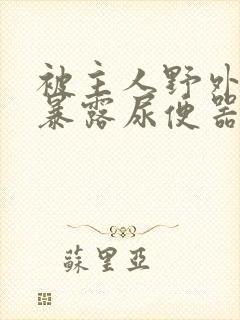 被主人野外
暴露尿便器
蘇里亞